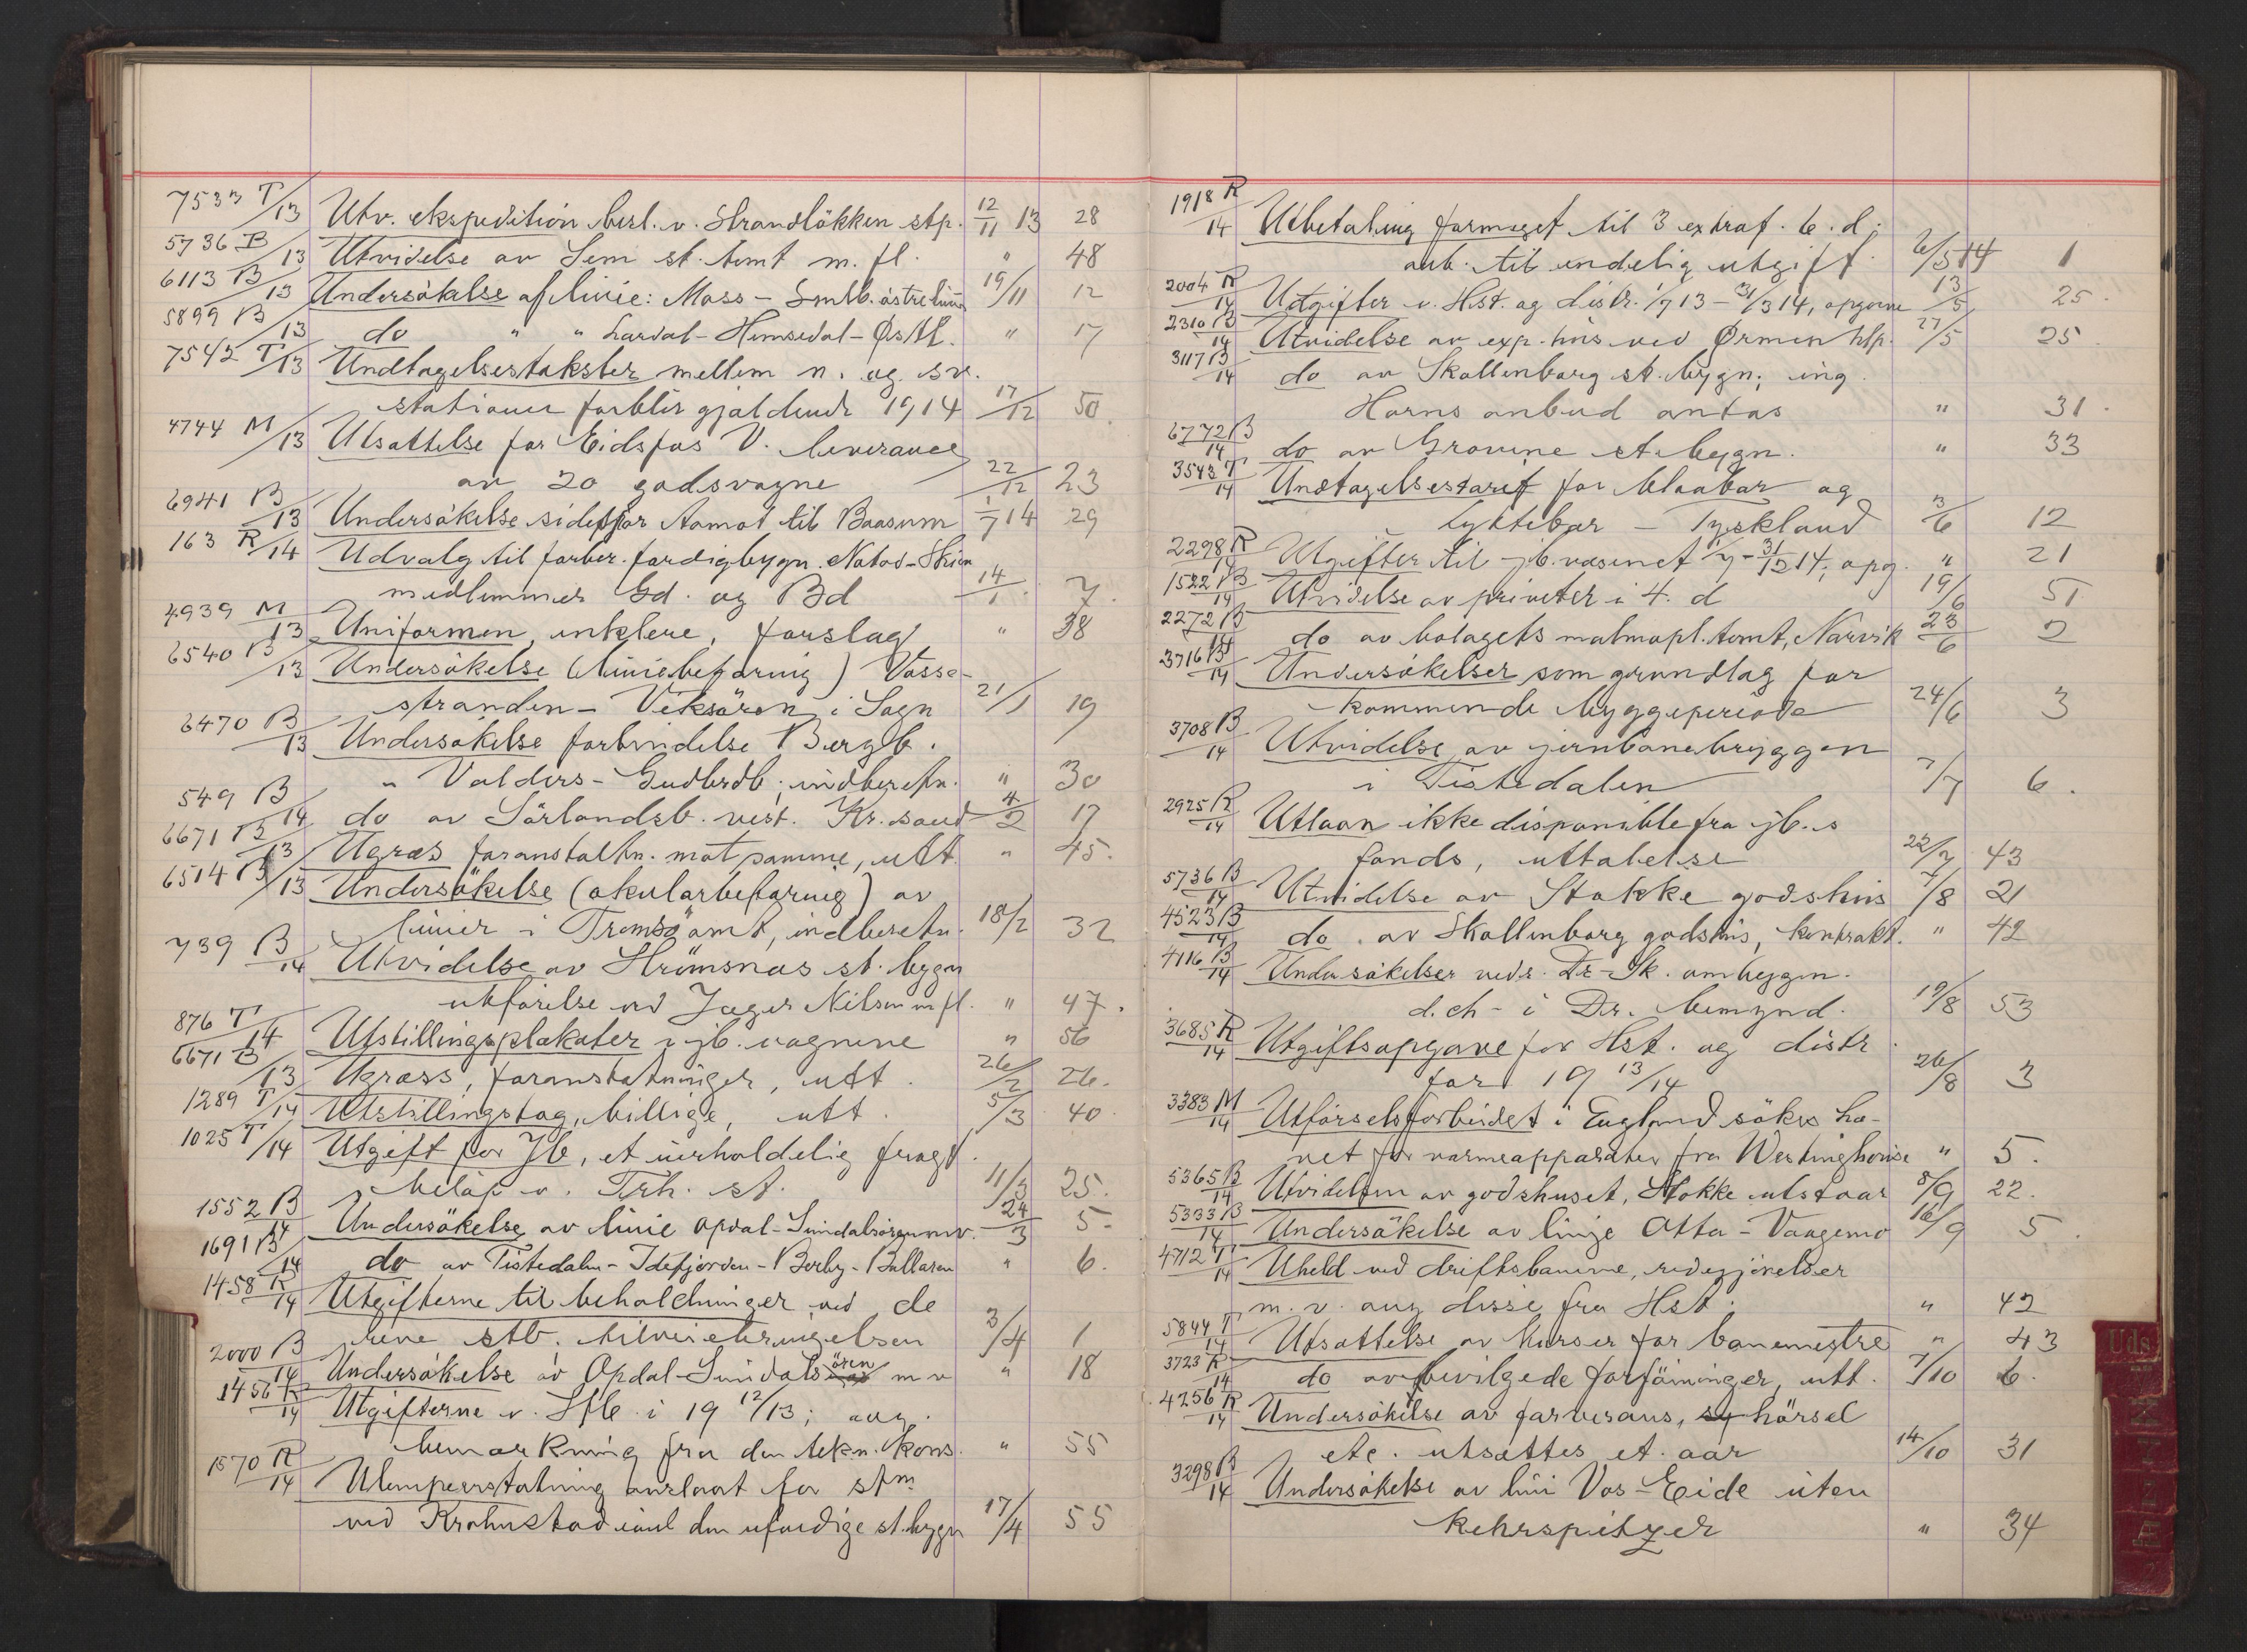 7533 T/13 Utv. ekspedition besl. v. Strandlökken stp. 12/11 13 28
5736 B/13 Utvidelse av Sem st. tomt m. fl. " 48
6113 B/13 Undersökelse af linie: Moss - Smlb. östre linie 19/11 12
5899 B/13 do " " Lardal - Hemsedal - Østl. " 17
7542 T/13 Undtagelsestakster mellem n. og sv.
stationer forblir gjældende 1914 17/12 50
4744 M/13 Utsættelse for Eidsfos V. leverance
av 20 godsvogne 22/12 23
6941 B/13 Undersökelse sidespor Aamot til Baasum 7/1 14 29
163 R/14 Udvalg til forber. færdigbygn. Notod - Skien
medlemmer Gd. og Bd 14/1 7.
4939 M/13 Uniformen, enklere, forslag " 38
6540 B/13 Undersökelse (liniebefaring) Vosse-
stranden - Viksören i Sogn 21/1 19
6470 B/13 Undersökelse forbindelse Bergb.
- Valders - Gudbrdb; indberetn. " 30
549 B/14 do av Sörlandsb. vest. Kr.sand 4/2 17
6671 B/13 Ugræs foranstaltn. mot samme, utt. " 45.
6514 B/13 Undersökelse (okularbefaring) av
linier i Tromsö amt, indberetn. 18/2 32
739 B/14 Utvidelse av Strömsnæs st. bygn
utförelse ved Jæger Nilsen m fl. " 47.
876 T/14 Utstillingsplakater i jb. vognene " 56
6671 B/13 Ugræss, foranstaltninger, utt. 26/2 26.
1289 T/14 Utstillingstog, billige, utt. 5/3 40.
1025 T/14 Utgift for Jb, et uerholdelig fragt
belöp v. Trh. st. 11/3 25.
1552 B/14 Undersökelse av linie Opdal - Sundalsören mv. 24/3 5.
1691 B/14 do av Tistedalen - Idefjorden - Berby - Bullaren " 6.
1458 R/14 Utgifterne til beholdninger ved de
rene stb. tilveiebringelsen 3/4 1
2000 B/14 Undersökelse av Opdal - Sundalsören m v " 18
1456 R/14 Utgifterne v. Sflb. i 19 12/13; ang.
bemærkning fra den tekn. kons. " 55
1570 R/14 Ulempeerstatning anslaat for stm
ved Krohnstad indl den ufærdige st. bygn 17/4 55
1918 R/14 Utbetaling formaget til 3 extraf. 6. d;
anb. til endelig utgift 6/5 14 1
2004 R/14 Utgifter v. Hst. og distr. 1/7 13 - 31/3 14, opgave 13/5 25.
2310 B/14 Utvidelse av exp. hus ved Ørmen hlp. 27/5 25.
3117 B/14 do av Skollenborg st. bygn; ing.
Horns anbud antas " 31.
6772 B/14 do av Grovine st. bygn. " 33
3543 T/14 Undtagelsestarif for blaabær og
tyttebær - Tyskland 3/6 12
2298 R/14 Utgifter til jb. væsenet 1/7 - 31/12 14; opg. " 21
1522 B/14 Utvidelse av priveter i 4. d 19/6 51
2272 B/14 do av bolagets malmopl. tomt, Narvik 23/6 2
3716 B/14 Undersökelser som grundlag for
kommende byggeperiode 24/6 3
3708 B/14 Utvidelse av jernbanebryggen
i Tistedalen 7/7 6.
2925 R/14 Utlaan ikke disponible fra jb. s
fonds, uttalelse 22/7 43
5736 B/14 Utvidelse av Stokke godshus 7/8 21
4523 B/14 do av Skollenborg godshus, kontrakt. " 42
4116 B/14 Undersökelser vedr. Dr - Sk. ombygn.
d.ch - i Dr. bemynd. 19/8 53
3685 R/14 Utgiftsopgave for Hst. og distr.
for 19 13/14 26/8 3
3383 M/14 Utförselsforbudet i England sökes hæ-
vet for varmeapparater fra Westinghouse " 5.
5365 B/14 Utvidelsen av godshuset, Stokke utstaar 8/9 22.
5333 B/14 Undersökelse av linje Otta - Vaagemo 16/9 5.
4712 T/14 Uheld ved driftsbanene, redegjörelser
m. v. ang disse fra Hst. " 42
5844 T/14 Utsættelse av kurser for banemestre " 43
3723 R/14 do av bevilgede forföininger, utt. 7/10 6.
4256 R/14 Undersökelse av farvesans, hörsel
etc. utsættes et aar 14/10 31
3298 B/14 Undersökelse av lini Vos - Eide uten
Kehrspitzer " 34
Uds